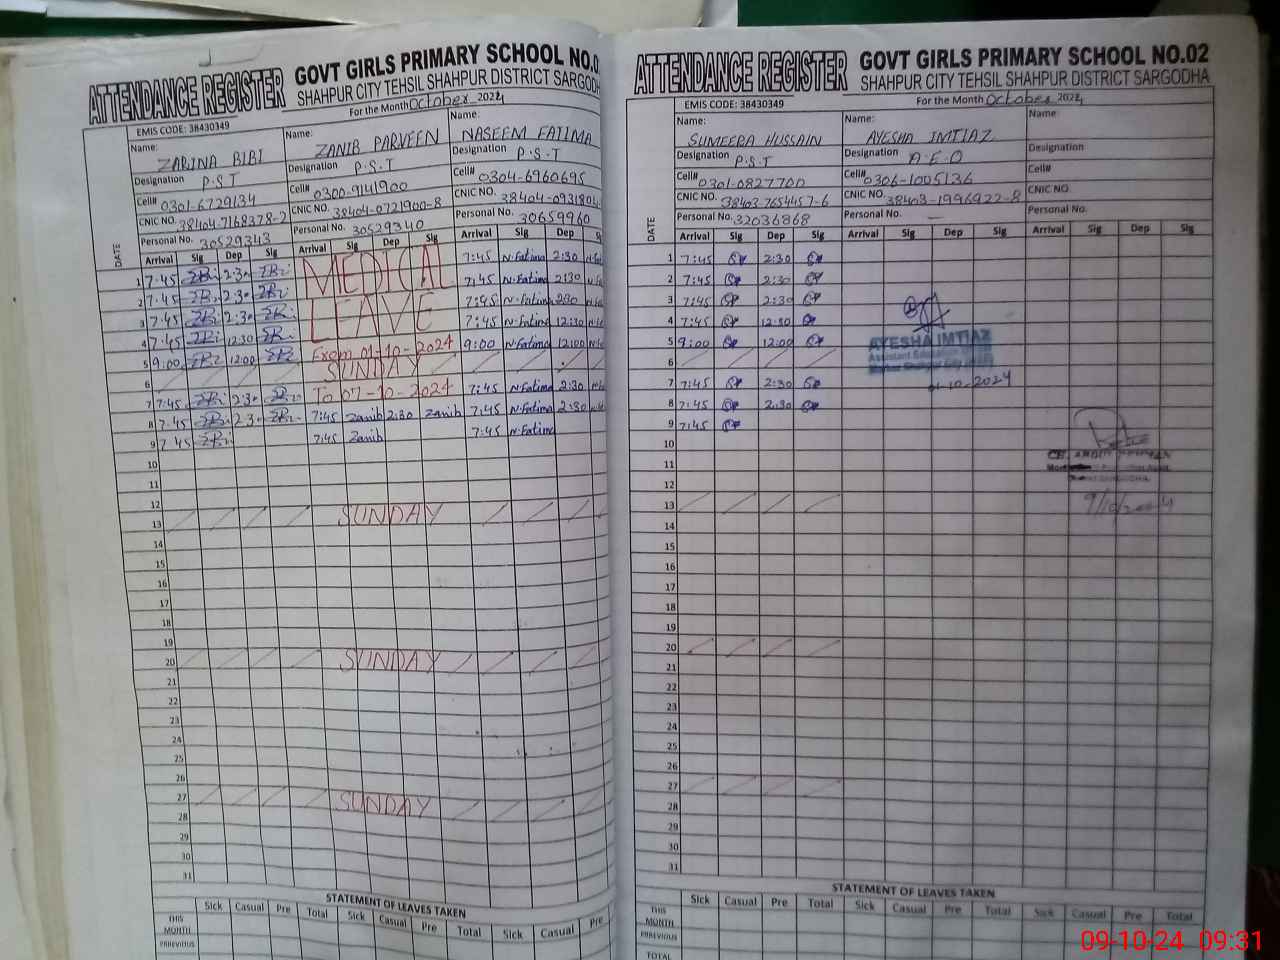 ATTENDANCE REGISTER
GOVT GIRLS PRIMARY SCHOOL NO.0
SHAHPUR CITY TEHSIL SHAHPUR DISTRICT SARGODHA
For the Month October 2024
EMIS CODE: 38430349
Name: ZARINA BIBI
Designation P.S.T
Cell# 0301-6729134
CNIC NO. 38404-7168378-2
Personal No. 30529343
Name: ZANIB PARVEEN
Designation P.S.T
Cell# 0300-9141900
CNIC NO. 38404-0721900-8
Personal No. 30529340
Name: NASEEM FATIMA
Designation P.S.T
Cell# 0304-6960695
CNIC NO. 38404-0931804
Personal No. 30659960
DATE Arrival Sig Dep Sig Arrival Sig Dep Sig Arrival Sig Dep
1 7:45 2:30 MEDICAL 7:45 N.Fatima 2:30
2 7:45 2:30 7:45 N.Fatima 2:30
3 7:45 2:30 LEAVE 7:45 N.Fatima 2:30
4 7:45 12:30 7:45 N.Fatima 12:30
5 9:00 12:00 From 01-10-2024 9:00 N.Fatima 12:00
6 SUNDAY
7 7:45 2:30 To 07-10-2024 7:45 N.Fatima 2:30
8 7:45 2:30 7:45 Zanib 2:30 Zanib 7:45 N.Fatima 2:30
9 7:45 7:45 Zanib 7:45 N.Fatima
10
11
12
13 SUNDAY
14
15
16
17
18
19
20 SUNDAY
21
22
23
24
25
26
27 SUNDAY
28
29
30
31
STATEMENT OF LEAVES TAKEN
Sick Casual Pre Total Sick Casual Pre Total Sick Casual Pre
THIS MONTH
PREVIOUS
ATTENDANCE REGISTER
GOVT GIRLS PRIMARY SCHOOL NO.02
SHAHPUR CITY TEHSIL SHAHPUR DISTRICT SARGODHA
EMIS CODE: 38430349
For the Month October 2024
Name: SUMEERA HUSSAIN
Designation P.S.T
Cell# 0301-0827700
CNIC NO. 38403-7654457-6
Personal No. 32036868
Name: AYESHA IMTIAZ
Designation A.E.O
Cell# 0306-1005136
CNIC NO. 38403-1996922-8
Personal No. —
Name:
Designation
Cell#
CNIC NO.
Personal No.
DATE Arrival Sig Dep Sig Arrival Sig Dep Sig Arrival Sig Dep Sig
1 7:45 2:30
2 7:45 2:30
3 7:45 2:30
4 7:45 12:30
5 9:00 12:00 AYESHA IMTIAZ
6 Assistant Education
7 7:45 2:30 01-10-2024
8 7:45 2:30
9 7:45
10
11
12
13 9/10/2024
14
15
16
17
18
19
20
21
22
23
24
25
26
27
28
29
30
31
STATEMENT OF LEAVES TAKEN
Sick Casual Pre Total Sick Casual Pre Total Sick Casual Pre Total
THIS MONTH
PREVIOUS
TOTAL
09-10-24 09:31